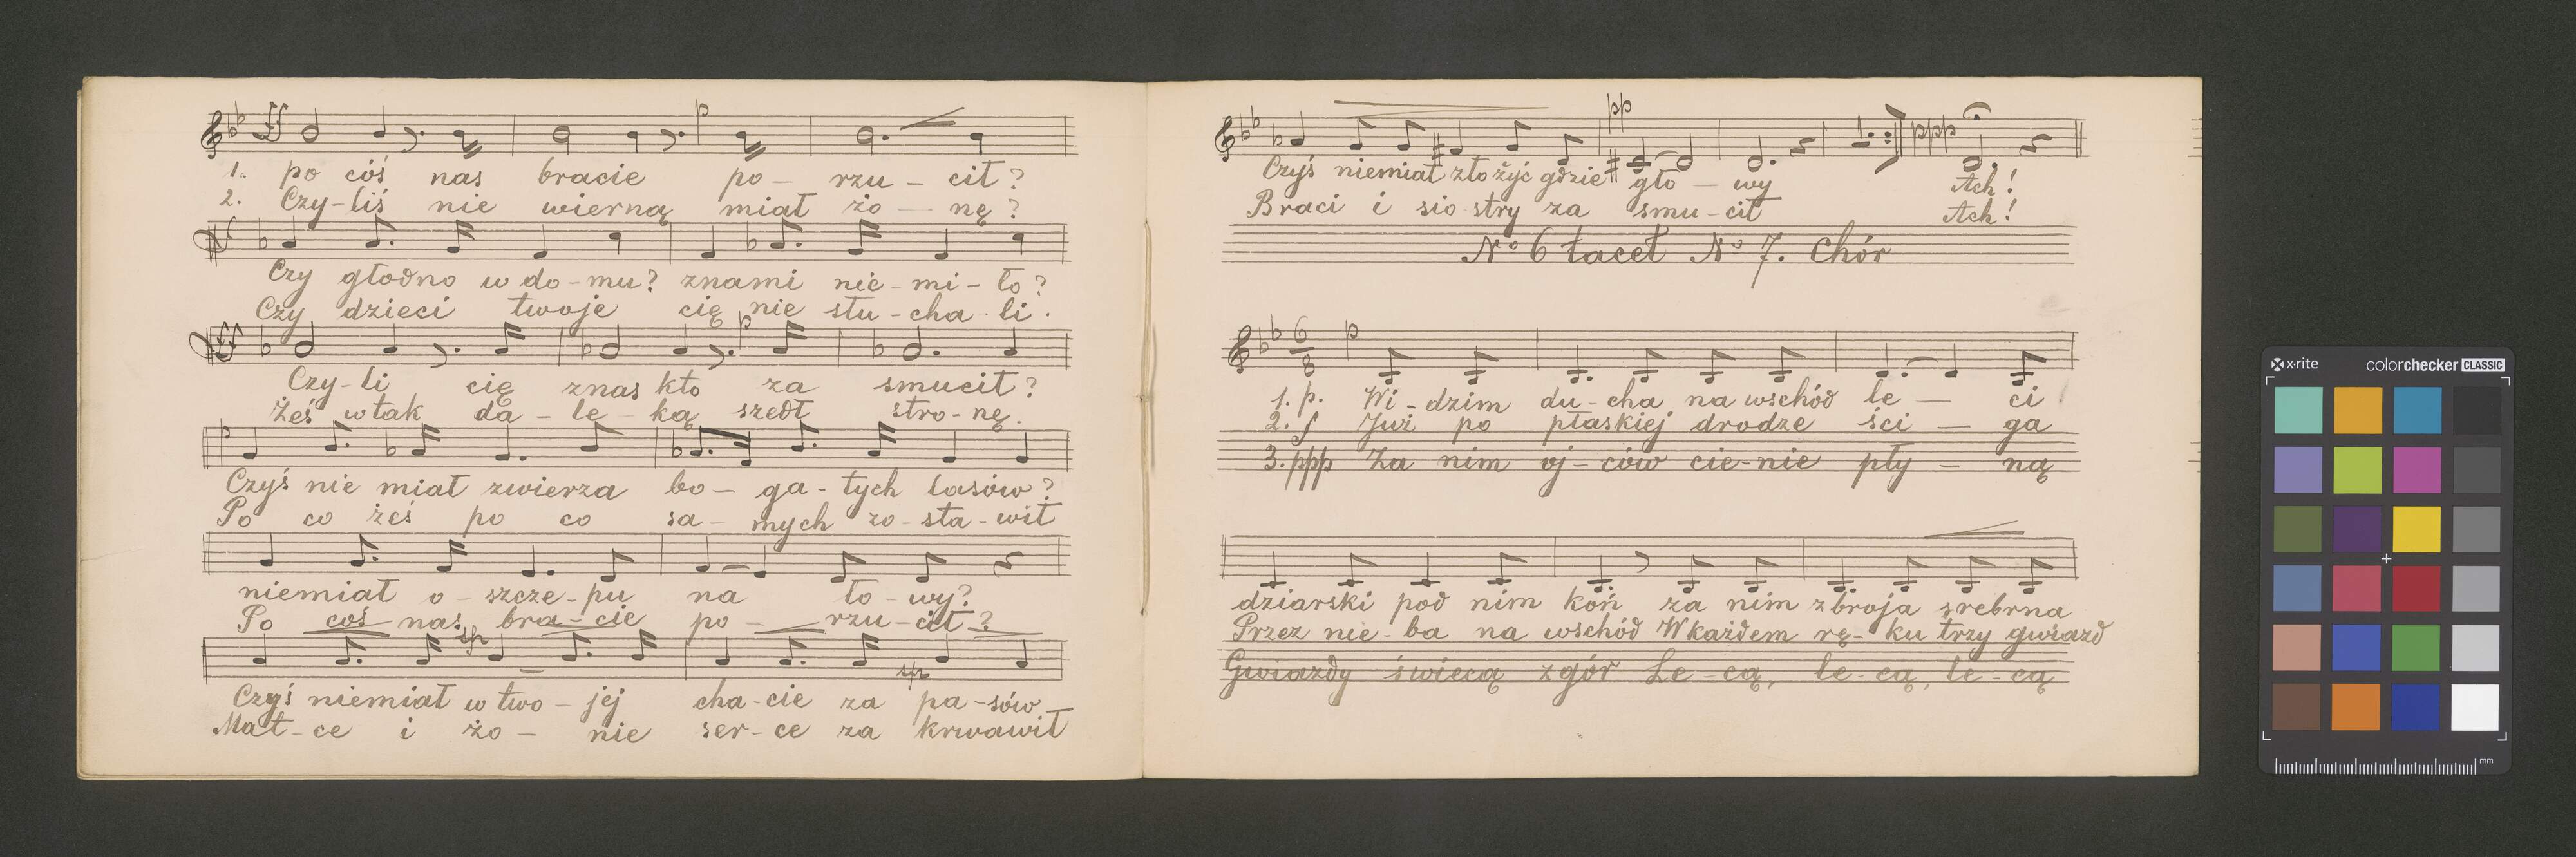 ff p
1. po cóś nas bracie po - rzu - cił?
2. Czy-liś nie wierną miał żo - nę?
Czy głodno w do-mu? znami nie-mi-ło?
Czy dzieci twoje cię nie słu-cha-li.
ff p
Czy-li cię znas kto za smucił?
Żeś w tak da-le-ką szedł stro-nę.
Czyś nie miał zwierza bo-ga-tych lasów?
Po co żeś po co sa-mych zo-sta-wił
niemiał o-szcze-pu na ło-wy?
Po coś nas bra-cie po - rzu-cił?
sfz sfz
Czyś niemiał w two-jej cha-cie za pa-sów
Mat-ce i żo-nie ser-ce za krwawił
pp ppp
Czyś niemiał złożyć gdzie gło-wy Ach!
Braci i sio-stry za smu-cił Ach!
No 6 tacet No 7. Chór
6/8 p
1. p. Wi-dzim du-cha na wschód le - ci
2. f Już po płaskiej drodze ści - ga
3. ppp Za nim oj-ców cie-nie pły - ną
dziarski pod nim koń za nim zbroja srebrna
Przez nie-ba na wschód W każdem rę-ku trzy gwiazd
Gwiazdy świecą z gór Le-cą, le-cą, le-cą
x-rite
colorchecker CLASSIC
mm